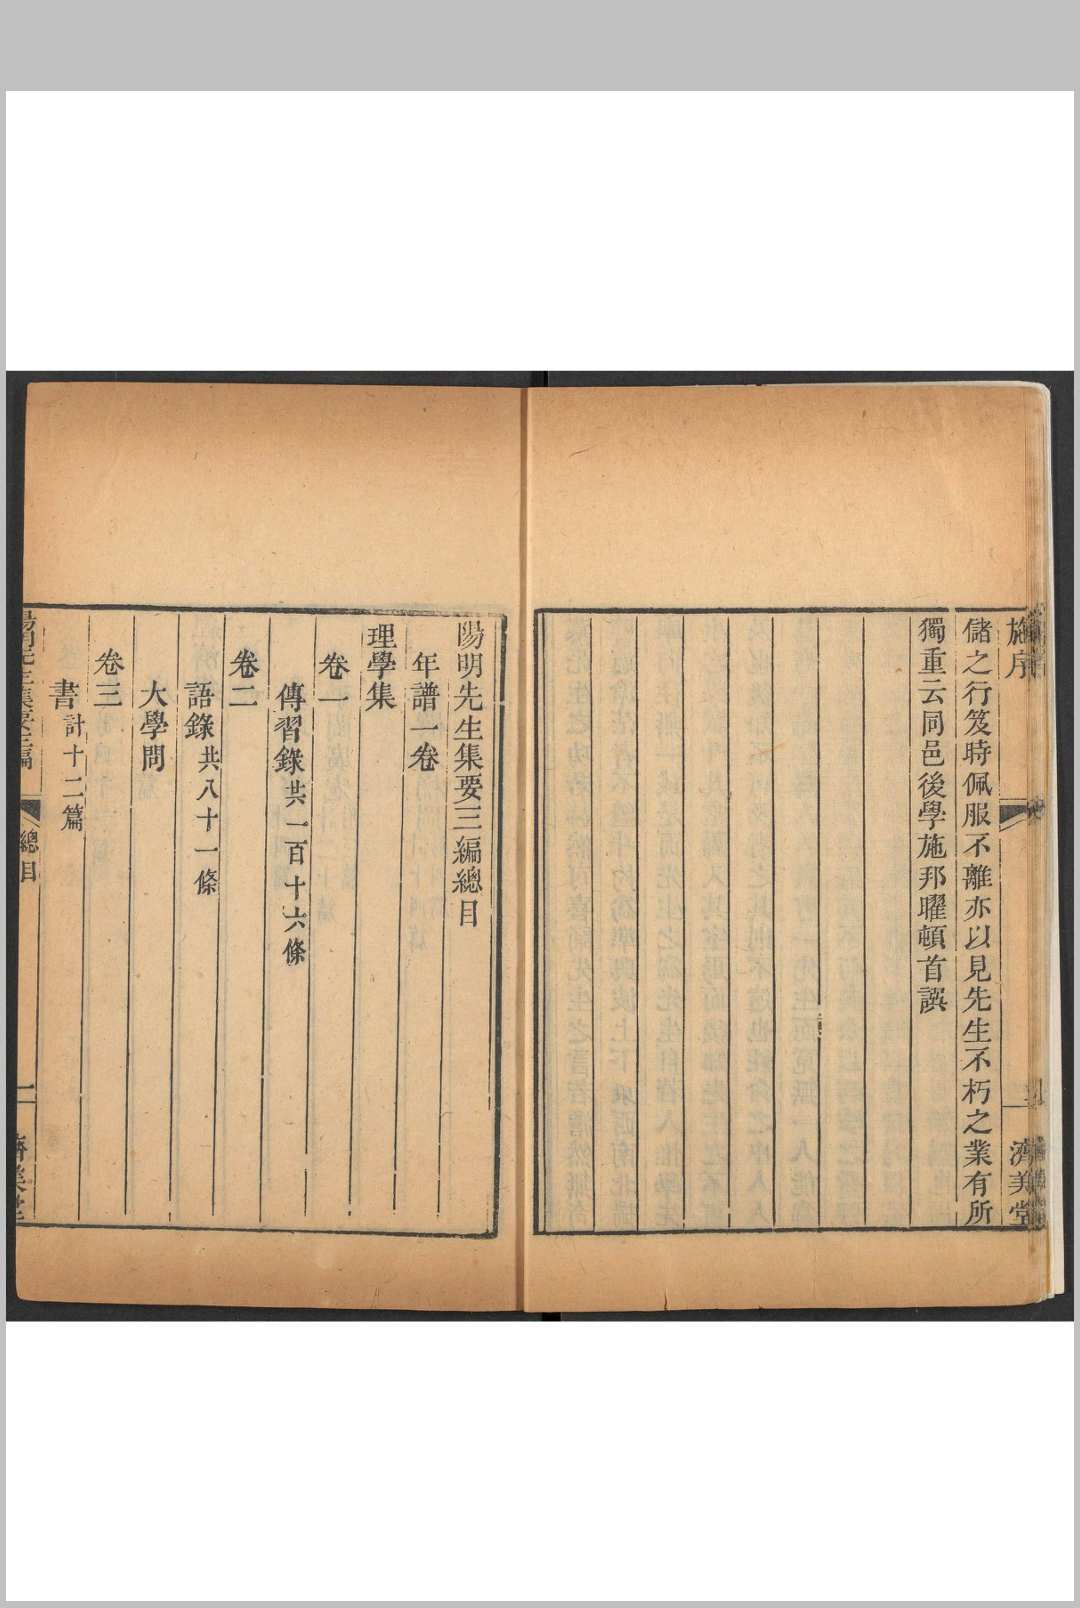 施序
濟美堂
儲之行笈時佩服不離亦以見先生不朽之業有所
獨重云同邑後學施邦曜頓首譔
陽明先生集要三編總目
年譜一卷
理學集
卷一
傳習錄共一百十六條
卷二
語錄共八十一條
大學問
卷三
書計十二篇
陽明先生集要三編
總目
一
濟美堂